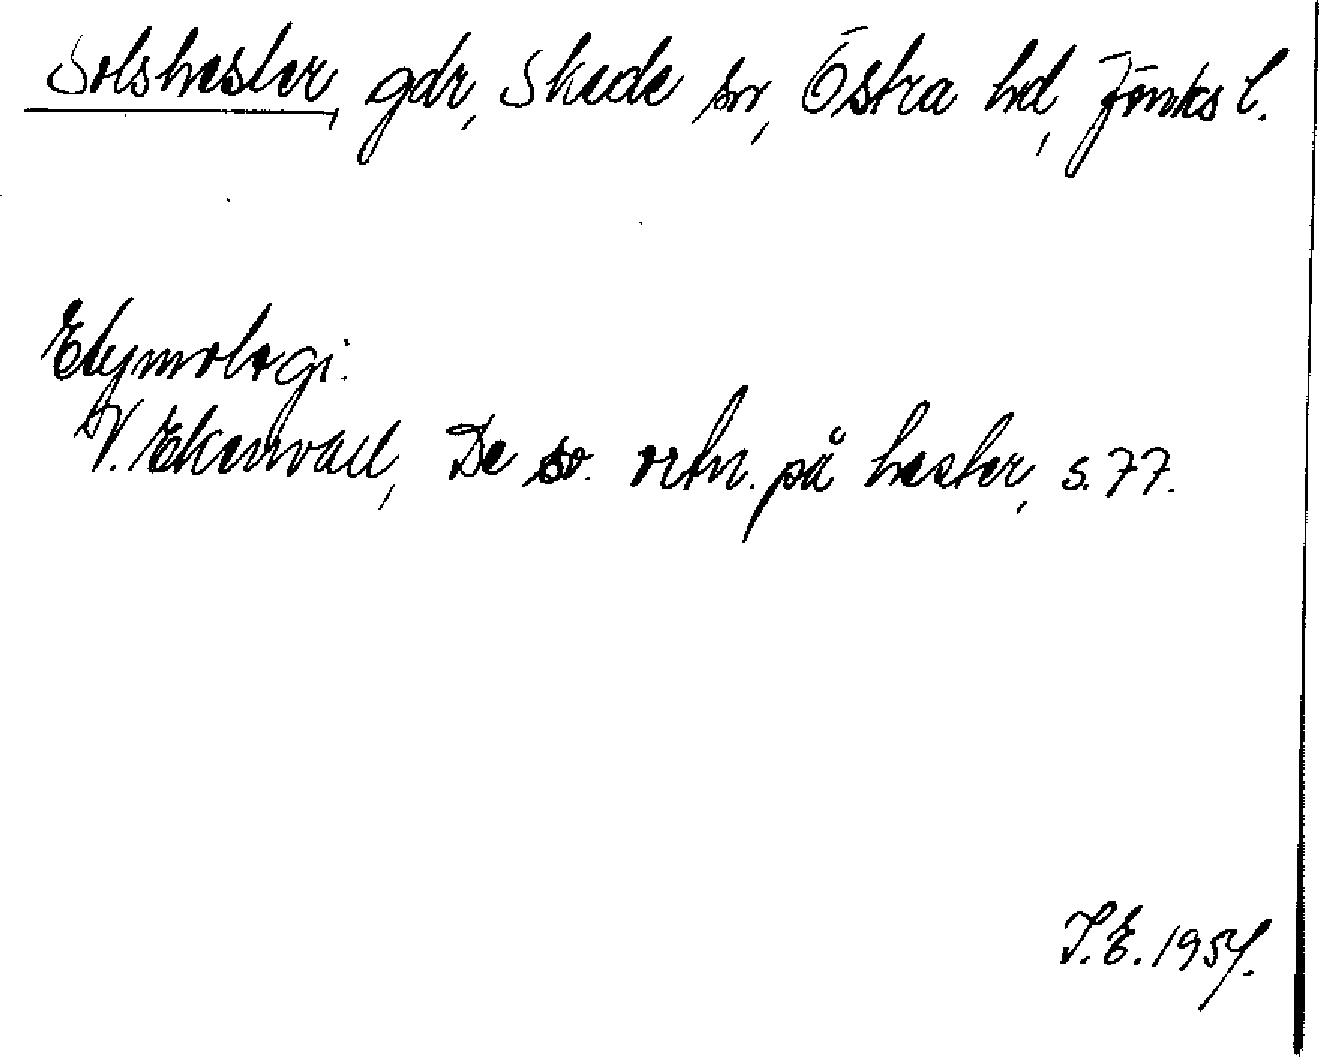 Solshester, gdr, Skede sn, Östra hd, Jönks l.
Etymologi:
V. Ekenvall, De sv. ortn. på hester, s. 77.
I.E. 1954.